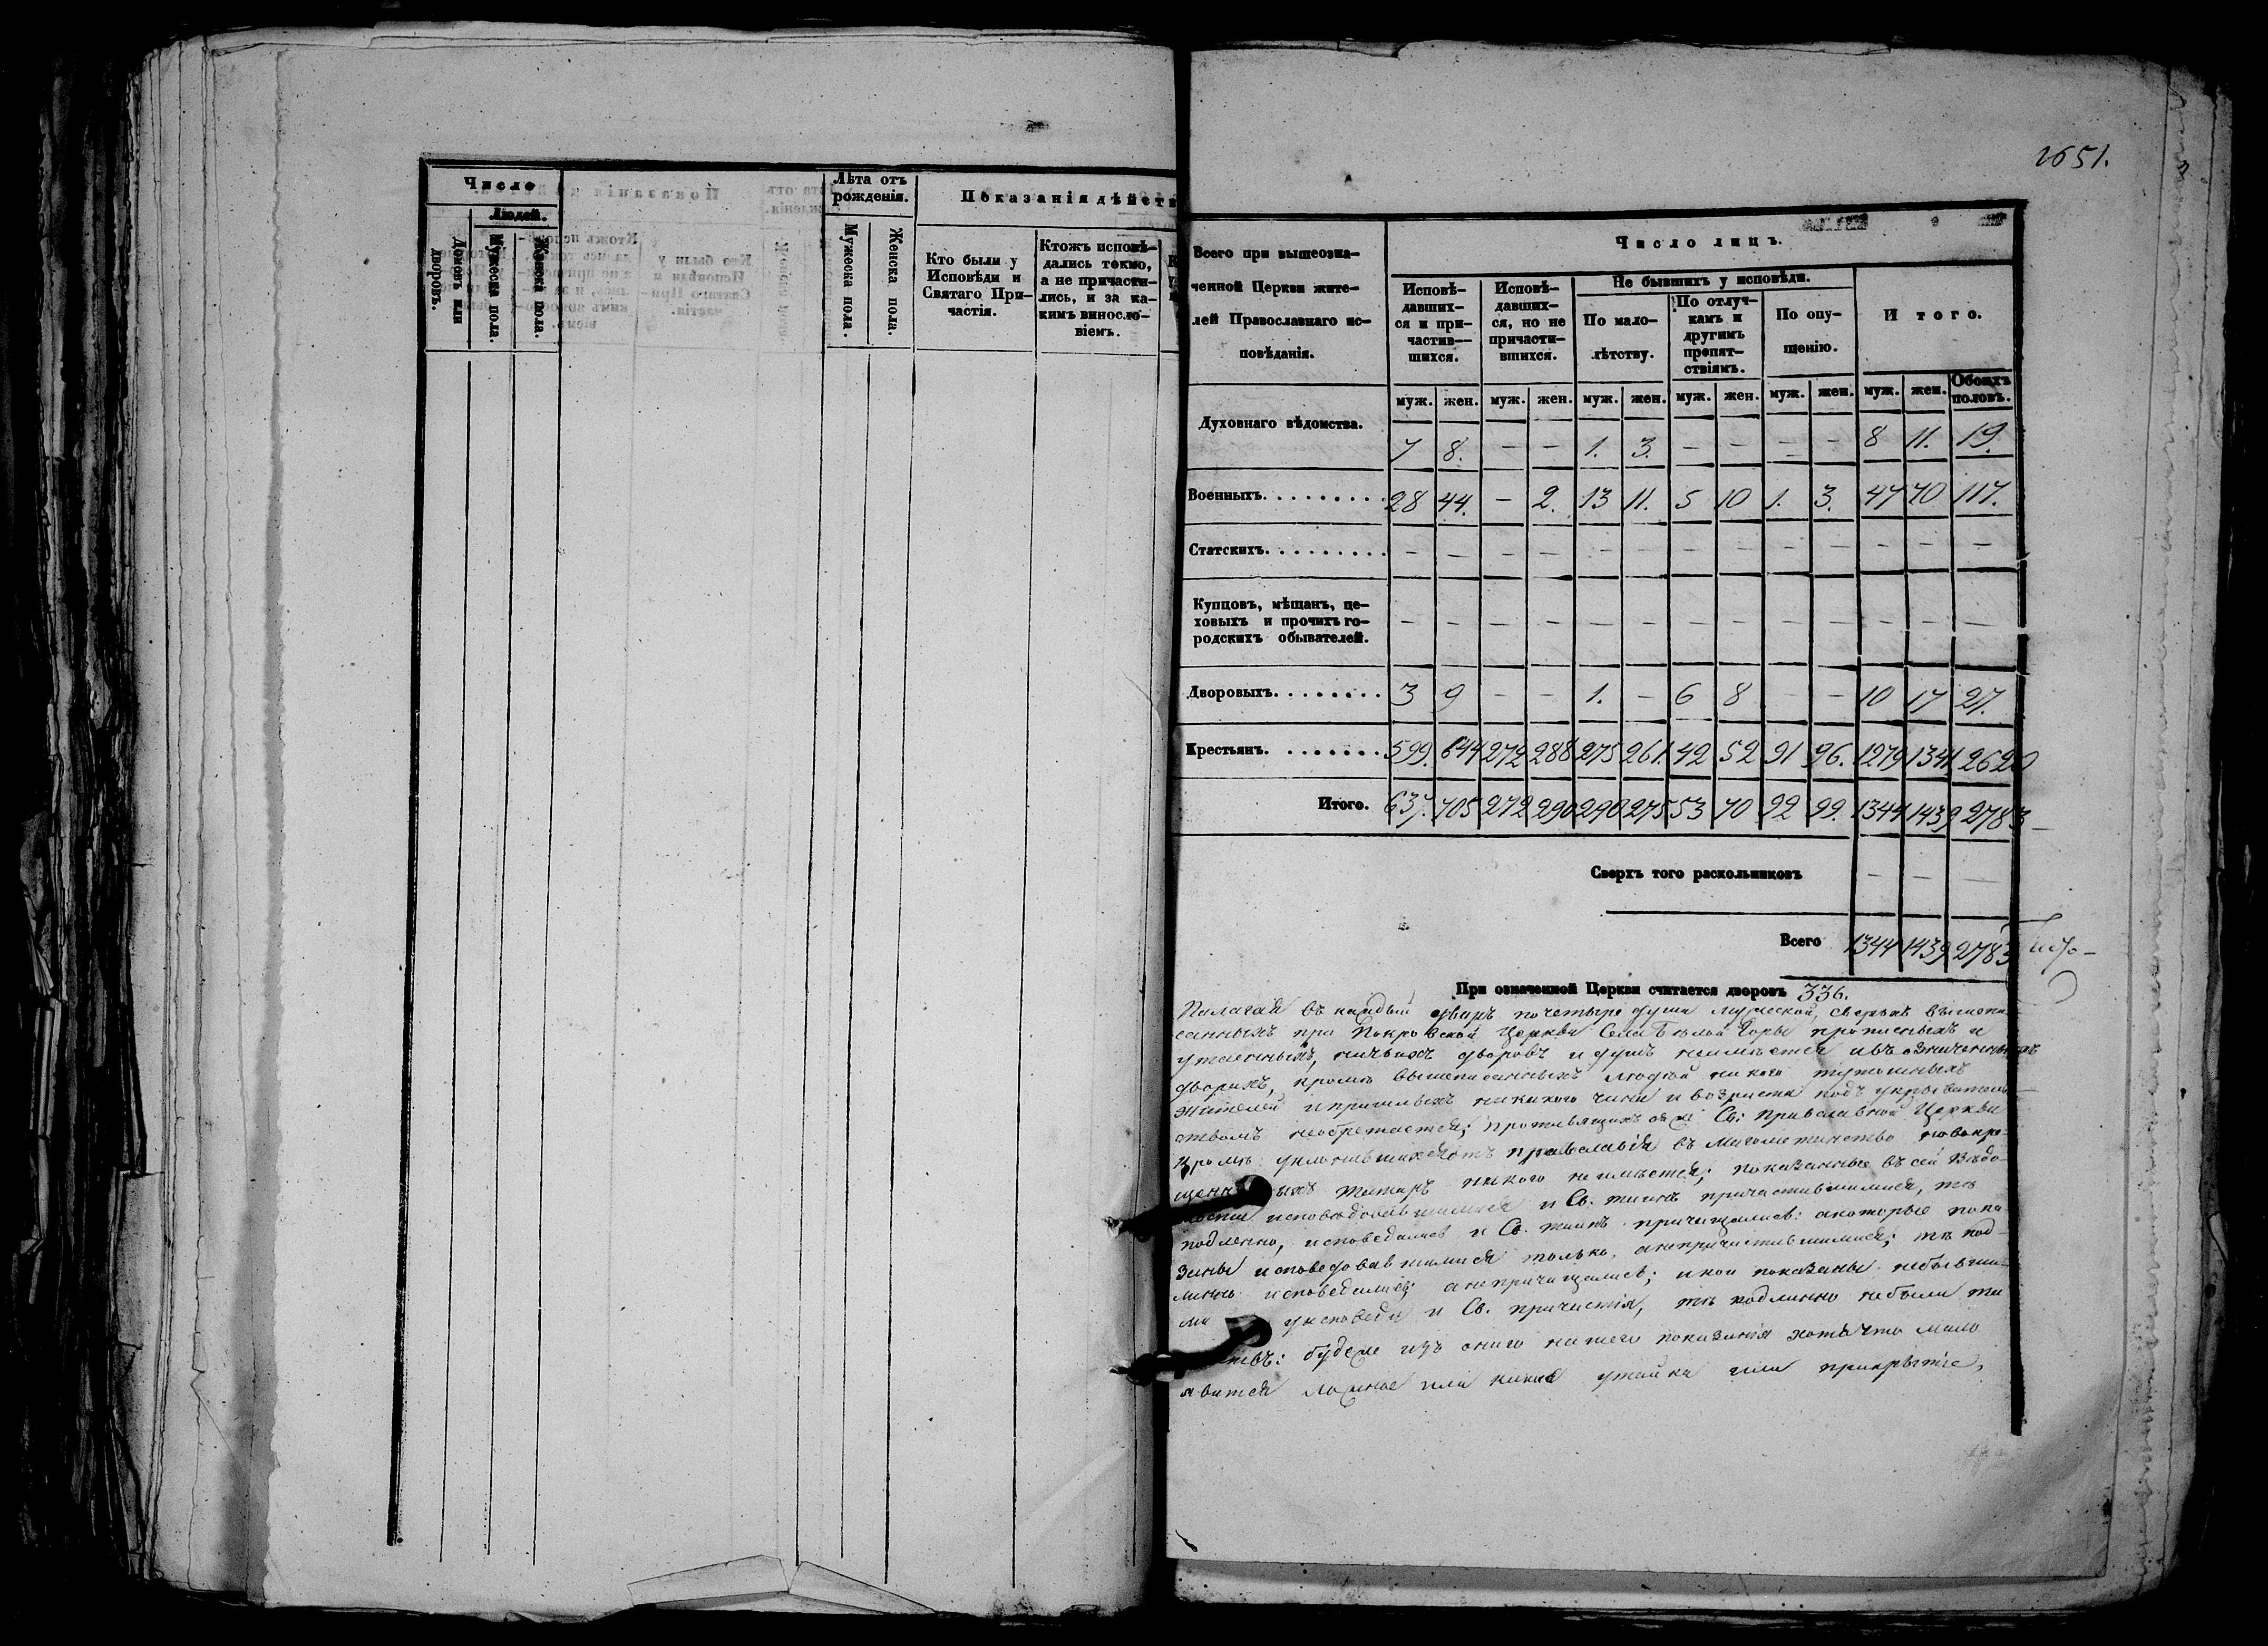 Число
Людей.
Домовъ или дворовъ.
Мужеска пола.
Женска пола.
Лѣта отъ рожденія.
Мужеска пола.
Женска пола.
Показанія дѣйств
Кто были у
Исповѣди и
Святаго При-
частія.
Ктожъ исповѣ-
дались токмо,
а не причасти-
лись, и за ка-
кимъ винослο-
віемъ.
1651.
Всего при вышеозна-
ченной Церкви жите-
лей Православнаго ис-
повѣданія.
Число лицъ.
Исповѣ-
давших-
ся и при-
частив-
шихся.
Исповѣ-
давших-
ся, но не
причасти-
вшихся.
Не бывшихъ у исповѣди.
По мало-
лѣтству.
По отлуч-
камъ и
другимъ
препят-
ствіямъ.
По опу-
щенію.
Итого.
муж. жен. муж. жен. муж. жен. муж. жен. муж. жен. муж. жен. Обоихъ половъ.
Духовнаго вѣдомства. 7 8. – – 1. 3. – – – – 8 11. 19.
Военныхъ. 28 44. – 2. 13 11. 5 10 1. 3. 47 70 117.
Статскихъ. – – – – – – – – – – – – –
Купцовъ, мѣщанъ, це-
ховыхъ и прочихъ го-
родскихъ обывателей. – – – – – – – – – – – – –
Дворовыхъ. 3 9 – – 1. – 6 8 – – 10 17 27.
Крестьянъ. 599. 644 272 288 275 261. 42 52 91 96. 1279 1341 2620
Итого. 637. 705 272 290 290 275 53 70 92 99. 1344 1439 2783
Сверхъ того раскольниковъ – – –
Всего 1344 1439 2783
При означенной Церкви считается дворовъ 336.
Полагая въ каждый дворъ по четыре души мужеской, сверхъ вышепи
санныхъ при Покровской Церкви Села Бѣлой Горы прописныхъ и
утаенныхъ, ничьихъ дворовъ и душъ неимѣется и въ означенныхъ
дворахъ, кромѣ вышеписанныхъ людей никого тутошныхъ
жителей и пришлыхъ никакого чина и возраста подъ укрывательс
ствомъ необретается; противящихся же Св: Православной Церкви
кромѣ уклонившихся отъ православія въ магометанство новокре-
щенныхъ татаръ никого неимѣется; показанные въ сей Вѣдо-
мости исповѣдовавшимися и Св. таинъ причастившимися, тѣ
подленно, исповедались и Св. таинъ причащались: а которые пока
заны исповедовавшимися только, а непричастившимися; тѣ под-
линно исповедались; а непричащались; и кои показаны небывши-
ми у исповеди и Св. причастія, тѣ подлинно небыли
будеже изъ онаго нашего показанія хотя что мало
явится ложное или какая утайка или прикрытіе,